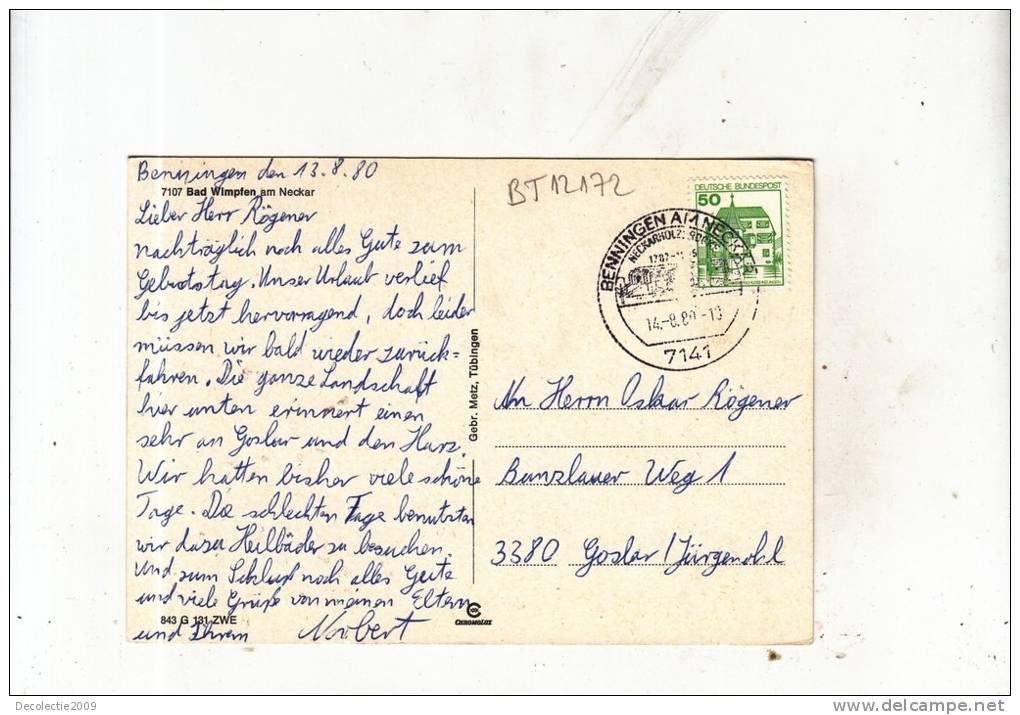 Benningen den 13.8.80
7107 Bad Wimpfen am Neckar
Lieber Herr Rögener
nachträglich noch alles Gute zum
Geburtstag. Unser Urlaub verlief
bis jetzt hervorragend, doch leider
müssen wir bald wieder zurück=
fahren. Die ganze Landschaft
hier unten erinnert einen
sehr an Goslar und den Harz.
Wir hatten bisher viele schöne
Tage. Die schlechten Tage benutzten
wir dazu Heilbäder zu besuchen.
Und zum Schluß noch alles Gute
und viele Grüße von meinen Eltern
843 G 131 ZWE
und Ihrem Norbert
Gebr. Metz, Tübingen
CHROMOLUX
BT12172
DEUTSCHE BUNDESPOST
50
BENNINGEN AM NECKAR
14.-8.80-13
7141
An Herrn Oskar Rögener
Bunzlauer Weg 1
3380 Goslar/Jürgenohl
Decolectie2009
www.delcampe.net